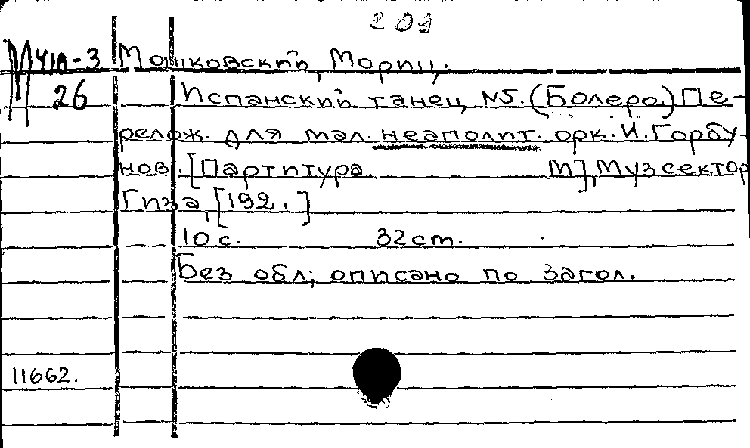 201
М410-3 Мошковский, Мориц.
26 Испанский танец №5. (Болеро.) Пе-
релож. для мал. неаполит. орк. И. Горбу
нов. [Партитура М], Музсектор
Гиза, [192. ]
10 с. 32 cm.
Без обл; описано по загол.
11662.